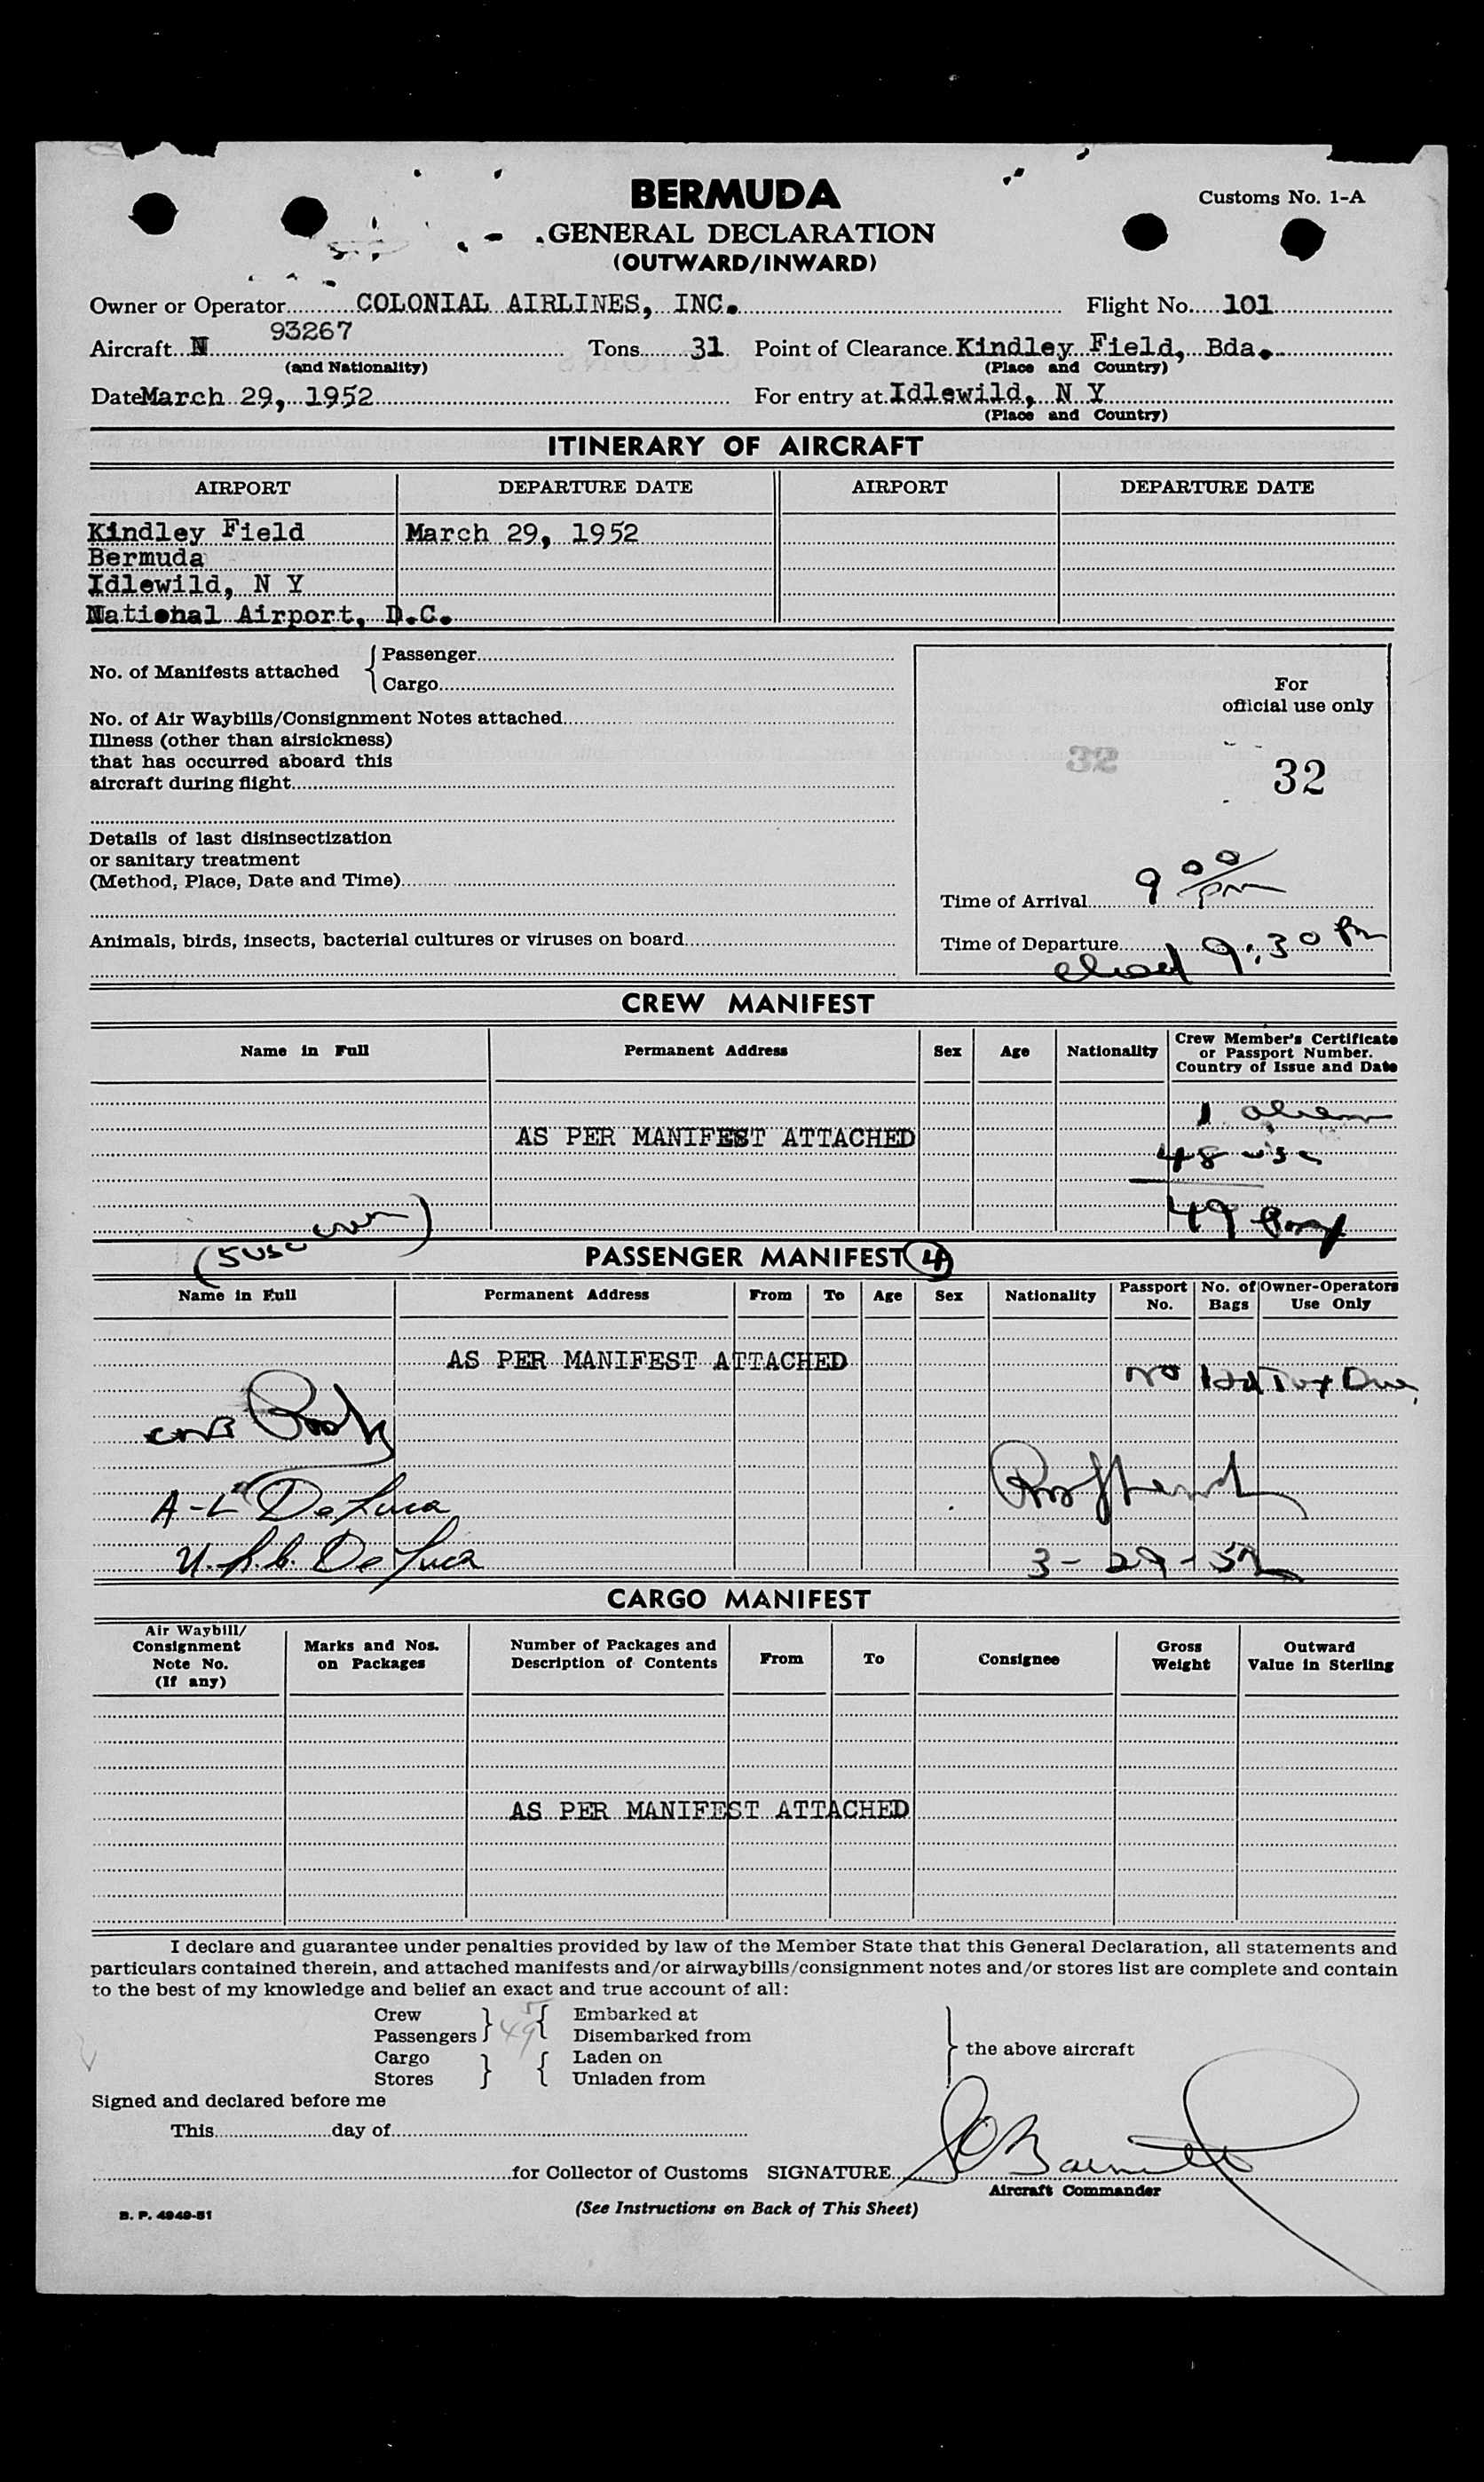 BERMUDA
Customs No. 1-A
GENERAL DECLARATION
(OUTWARD/INWARD)
Owner or Operator COLONIAL AIRLINES, INC. Flight No. 101
Aircraft N 93267 Tons 31 Point of Clearance Kindley Field, Bda.
(and Nationality) (Place and Country)
Date March 29, 1952 For entry at Idlewild, N Y
(Place and Country)
ITINERARY OF AIRCRAFT
AIRPORT DEPARTURE DATE AIRPORT DEPARTURE DATE
Kindley Field March 29, 1952
Bermuda
Idlewild, N Y
National Airport, D.C.
No. of Manifests attached
Passenger
Cargo
No. of Air Waybills/Consignment Notes attached
Illness (other than airsickness)
that has occurred aboard this
aircraft during flight
Details of last disinsectization
or sanitary treatment
(Method, Place, Date and Time)
Animals, birds, insects, bacterial cultures or viruses on board
For
official use only
32
32
Time of Arrival 9 00 pm
Time of Departure 9:30 Pm
CREW MANIFEST
Name in Full Permanent Address Sex Age Nationality Crew Member's Certificate
or Passport Number.
Country of Issue and Date
1 alien
AS PER MANIFEST ATTACHED
48 usc
49
(5 usc crew)
PASSENGER MANIFEST 4
Name in Full Permanent Address From To Age Sex Nationality Passport No. No. of Bags Owner-Operators Use Only
AS PER MANIFEST ATTACHED
No Hd Tax Due
A-L De Luca
De Luca
3-29-52
CARGO MANIFEST
Air Waybill/
Consignment
Note No.
(If any)
Marks and Nos.
on Packages
Number of Packages and
Description of Contents
From To Consignee
Gross
Weight
Outward
Value in Sterling
AS PER MANIFEST ATTACHED
I declare and guarantee under penalties provided by law of the Member State that this General Declaration, all statements and
particulars contained therein, and attached manifests and/or airwaybills/consignment notes and/or stores list are complete and contain
to the best of my knowledge and belief an exact and true account of all:
Crew 5 Embarked at
Passengers 49 Disembarked from
Cargo Laden on
Stores Unladen from
the above aircraft
Signed and declared before me
This day of
for Collector of Customs SIGNATURE
Aircraft Commander
B. P. 4949-51
(See Instructions on Back of This Sheet)